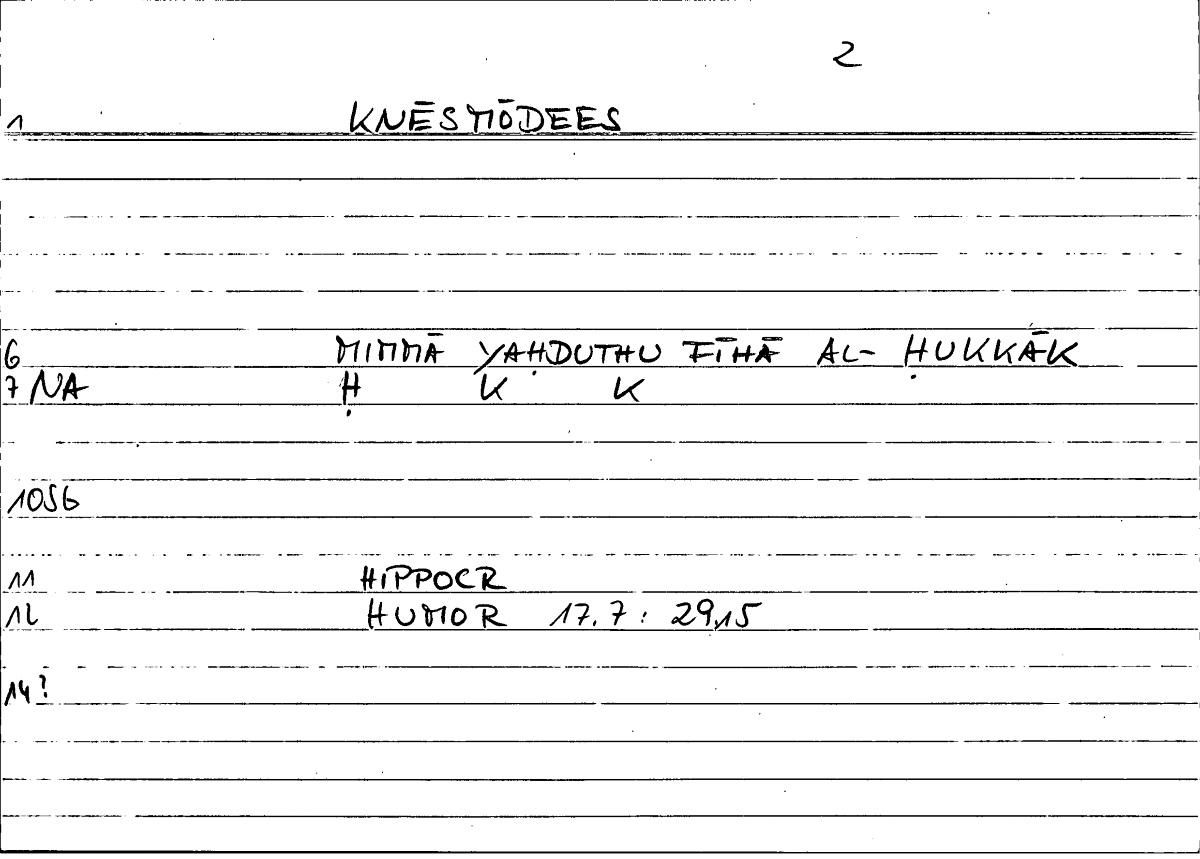 2
1 KNĒSMŌDEES
6 MIMMĀ YAḤDUTHU FĪHĀ AL- ḤUKKĀK
7 NA Ḥ K K
10SG
11 HIPPOCR
12 HUMOR 17.7: 29,15
14?